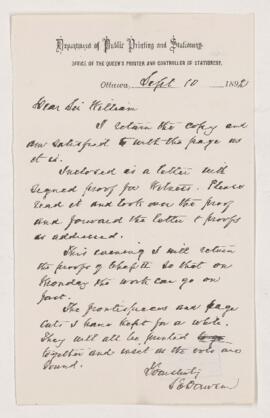 Department of Public Printing and Stationery.
OFFICE OF THE QUEEN'S PRINTER AND CONTROLLER OF STATIONERY.
Ottawa, Sept 10 1892
Dear Sir William
I return the copy and
am satisfied with the page as
it is.
Inclosed is a letter with
signed proof for Please
read it and look over the proof
and forward the letter & proofs
as addressed.
This evening I will return
the proofs of Chap so that on
Monday the work can go on
fast.
The frontispieces and page
cuts I have kept for a while.
They will all be printed
together and inset as the vols are
bound.
Yours truly
S E Dawson